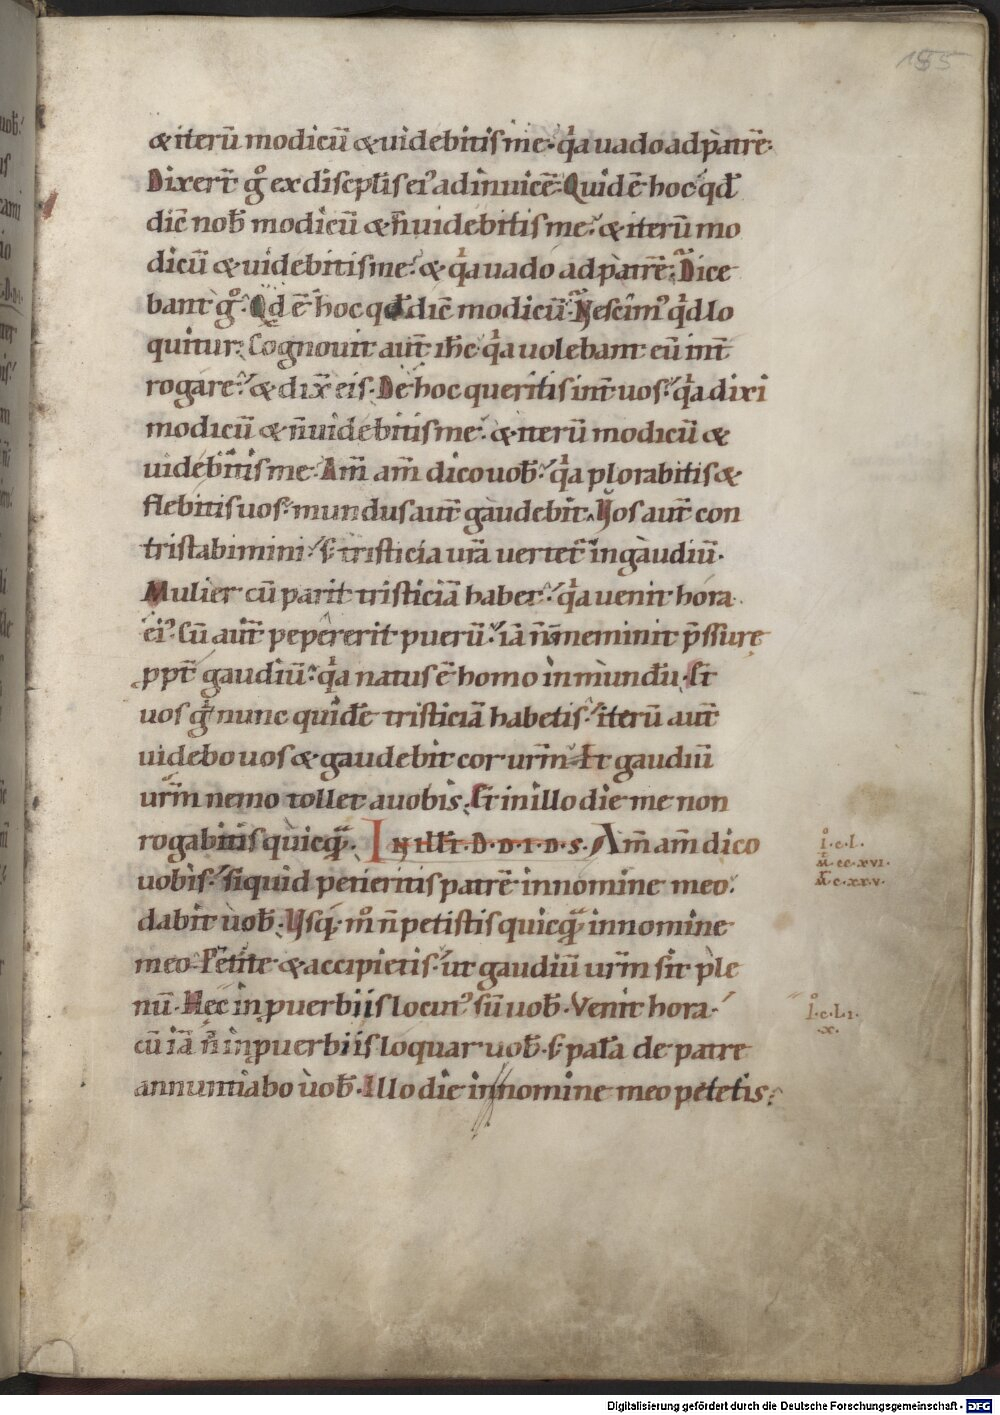 155
&iterū modicū &uidebitis me· qͥa uado ad pat̄rē·
Dixert̄ gͦ ex discipl̄is eiꝰ ad inuicē· Quid ē hoc qđ
dic̄ nob̄ modicū & n̄ uidebitis me· & iterū mo
dicū & uidebitis me· & qͥa uado ad patrē· Dice
bant gͦ· Qd ē hoc qđ dic̄ modicū· Nescimꝰ qͥd lo
quitur· Cognouit aut̄ ih̄c qͥa uolebant eū int̄
rogare· & dix̄ eis· De hoc queritis int̄ uos· qͥa dixi
modicū & n̄ uidebitis me· & iterū modicū &
uidebitis me· Am̄ am̄ dico uob̄· qͥa plorabitis &
flebitis uos· mundus aut̄ gaudebit· Vos aut̄ con
tristabimini· s̄ tristicia ur̄a uertet̄ in gaudiū·
Mulier cū parit tristiciā habet· qͥa uenit hora
eiꝰ· Cū aut̄ pepererit puerū· iā n̄ meminit p̄ssurę
ꝓpt̄ gaudiū· qͥa natus ē homo in mundū· Et
uos gͥ nunc quidē tristiciā habetis· iterū aut̄
uidebo uos & gaudebit cor ur̄m· Et gaudiū
ur̄m nemo tollet a uobis· Et in illo die me non
rogabitis quicq̄· In illt̄· D·D·I·D·S· Am̄ am̄ dico
uobis· siquid petieritis patrē in nomine meo·
dabit uob̄· Vsq· mͦ n̄ petistis quicq̄ in nomine
meo· Petite & accipietis· ut gaudiū ur̄m sit ple
nū· Hęc in ꝓuerbiis locutꝰ sū uob̄· Venit hora·
cū iā n̄ in ꝓuerbiis loquar uob̄· s̄ palā de patre
annuntiabo uob̄· Illo die in nomine meo petetis·
I·c·L·
M·cc·xvi·
M̄·c·xx·v·
I·c·Li·
·x·
Digitalisierung gefördert durch die Deutsche Forschungsgemeinschaft - DFG